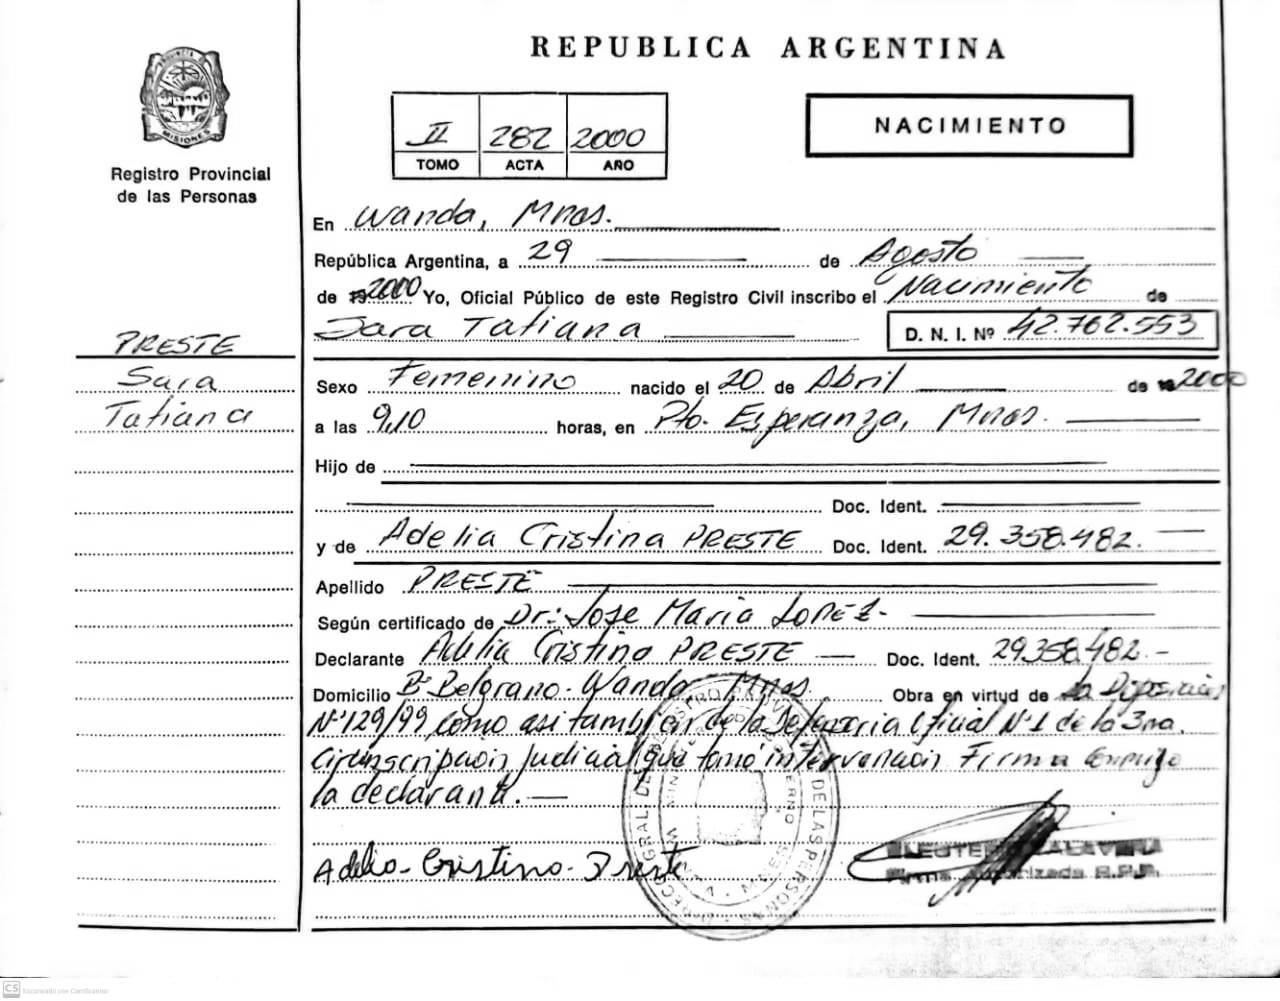 REPUBLICA ARGENTINA
MISIONES
Registro Provincial
de las Personas
II 282 2000
TOMO ACTA AÑO
NACIMIENTO
En Wanda, Mnes.
República Argentina, a 29 de Agosto
de 2000 Yo, Oficial Público de este Registro Civil inscribo el Nacimiento de
Sara Tatiana D. N. I. Nº 42.762.553
PRESTE
Sara
Tatiana
Sexo Femenino nacido el 20 de Abril de 2000
a las 9,10 horas, en Pto. Esperanza, Mnes.
Hijo de
Doc. Ident.
y de Adelia Cristina PRESTE Doc. Ident. 29.358.482.
Apellido PRESTE
Según certificado de Dr: Jose Maria LOPEZ-
Declarante Adelia Cristina PRESTE — Doc. Ident. 29.358.482.-
Domicilio Bº Belgrano- Wanda, Mnes. Obra en virtud de la Disposición
Nº129/99 como asi tambien de la Defensoria Oficial Nº1 de la 3ra.
Circunscripción Judicial que tomó intervención Firma conmigo
la declarante.—
Adelia- Cristina- Preste
Firma Autorizada R.P.P.
DE LAS PERSONAS
CS Escaneado con CamScanner